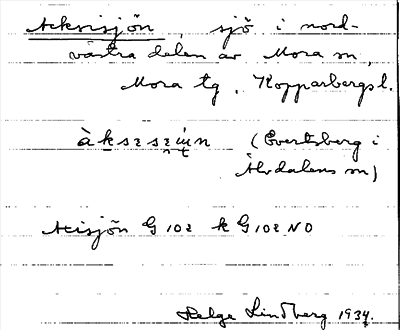 Ackrisjön, sjö i nord-
västra delen av Mora sn,
Mora tg, Kopparbergs l.
(Evertsberg i
Älvdalens sn)
Acisjön G 102 k G 102 NO
Helge Lindberg 1934.